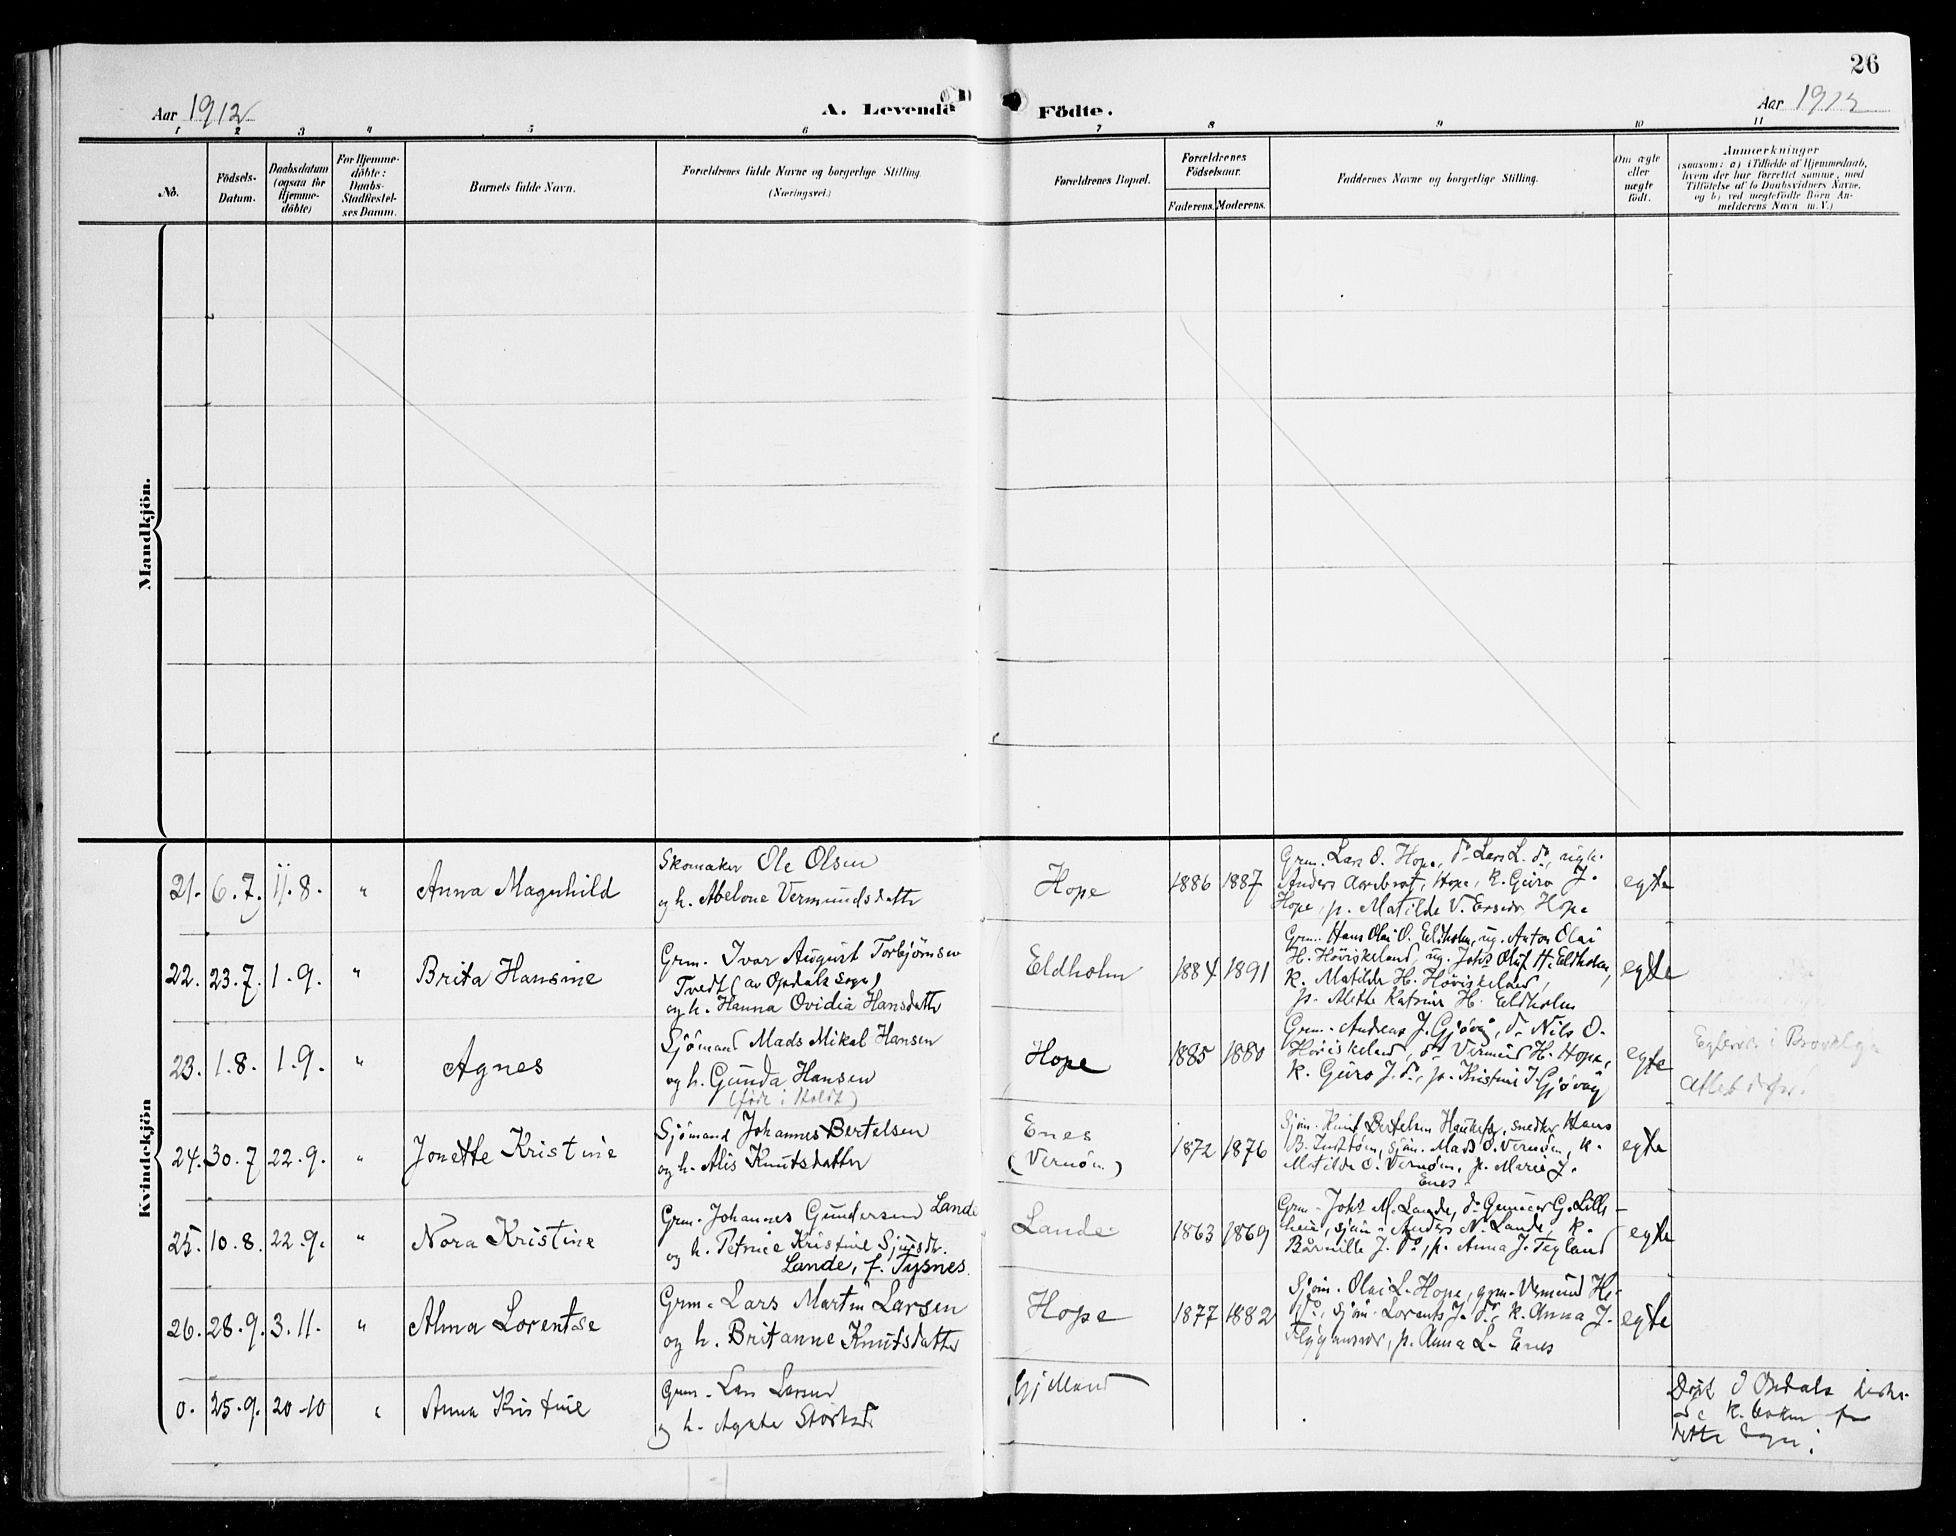 26
Aar 1912
A. Levende Födte.
Aar 1912
1 2 3 4 5 6 7 8 9 10 11
No.
Födsels-
Datum.
Daabsdatum
(ogsaa for
Hjemme-
döbte)
For Hjemme-
döbte:
Daabs-
Stadfæstel-
ses Datum.
Barnets fulde Navn.
Forældrenes fulde Navne og borgerlige Stilling.
(Næringsvei.)
Forældrenes Bopæl.
Forældrenes
Födselsaar.
Faderens. Moderens.
Faddernes Navne og borgerlige Stilling.
Om ægte
eller
uægte
födt.
Anmærkninger
(saasom: a) i Tilfælde af Hjemmedaab,
hvem der har forrettet samme, med
Tilföielse af to Daabsvidners Navne,
og b) ved uægtefödte Börn An-
melderens Navn m. V.)
Mandkjön.
Kvindekjön
21. 6.7. 11.8. " Anna Magnhild
Skomaker Ole Olsen
og h. Abelone Vermundsdatter
Hope 1886 1887
Grm. Lars O. Hope, do Lars L. do, ugk.
Anders Aarebrot, Hope, k. Guro J.
Hope, p. Matilde V. Hope
egte
22. 23.7. 1.9. " Brita Hansine
Grm. Ivar August Torbjørnsen
Tvedt (av Opdals sogn)
og h. Hanna Ovidia Hansdatter
Eldholm 1884 1891
Grm. Hans Olai O. Eldholm, ug. Anton Olai
H. Høviskeland, ug. Johs Oluf H. Eldholm,
k. Matilde H. Høviskeland,
p. Mette Katrine H. Eldholm
egte
23. 1.8. 1.9. " Agnes
Sjömand Mads Mikal Hansen
og h. Gunda Hansen
(född i Holdt)
Hope 1885 1880
Grm. Andreas J. Gjøvåg, do Nils O.
Høviskeland, do Vermund H. Hope,
k. Guro J. do, p. Kristine J. Gjøvåg
egte
i
24. 30.7. 22.9. " Jonette Kristine
Sjömand Johannes Bertelsen
og h. Alis Knutsdatter
Enes
(Vernøen)
1872 1876
Sjöm. Knut Bertelsen, snedker Hans
B. sjöm. Mads O. Vernøen, k.
Matilde O. Vernøen, p. Marie J.
Enes
egte
25. 10.8. 22.9. " Nora Kristine
Grm. Johannes Gundersen Lande
og h. Petrine Kristine Sjursdr.
Lande, f. Tysnes.
Lande 1863 1869
Grm. Johs M. Lande, do Gunnar G. Lille-
heim, sjöm. Anders N. Lande, k.
J. do, p. Anna J. Tegland
egte
26. 28.9. 3.11. " Alma Lorentse
Grm. Lars Martin Larsen
og h. Britanne Knutsdatter
Hope 1877 1882
Sjöm. Olai L. Hope, grm. Vermund H.
do, sjöm. Lorents J. do, k. Anna J.
Flygansvær, p. Anna L. Enes
egte
0. 25.9. 20-10 " Anna Kristine
Grm. Lars Larsen
og h. Agate
Døpt i Opdals kirke.
k. boken for
dette sogn.